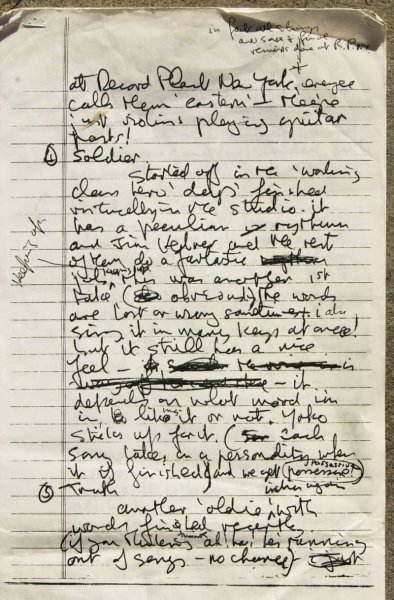 in fact all strings
and saxes
remixes done at R.P. NY
at Record Plant New York, everyone
calls them 'eastern' - they're
'just' violins playing guitar
parts!
④ Soldier
started off in the 'working
class hero' days finished
virtually in the studio. it
has a peculiar rhythm
and Jim Keltner and the rest
of them do a fantastic
job, this was another 1st
take (obviously) the words
are lost or wrong sometimes. i also
sing it in many keys at once!
but it still has a nice
feel - is
- it
depends on what mood im
in, like it or not. Yoko
sticks up for it. (each
song takes on a personality when
it is finished and we get possessive
Keeping up
⑤ Truth
another 'oldie' with
words finished recently
(if you thinking ah ha he's running
out of songs - no chance)